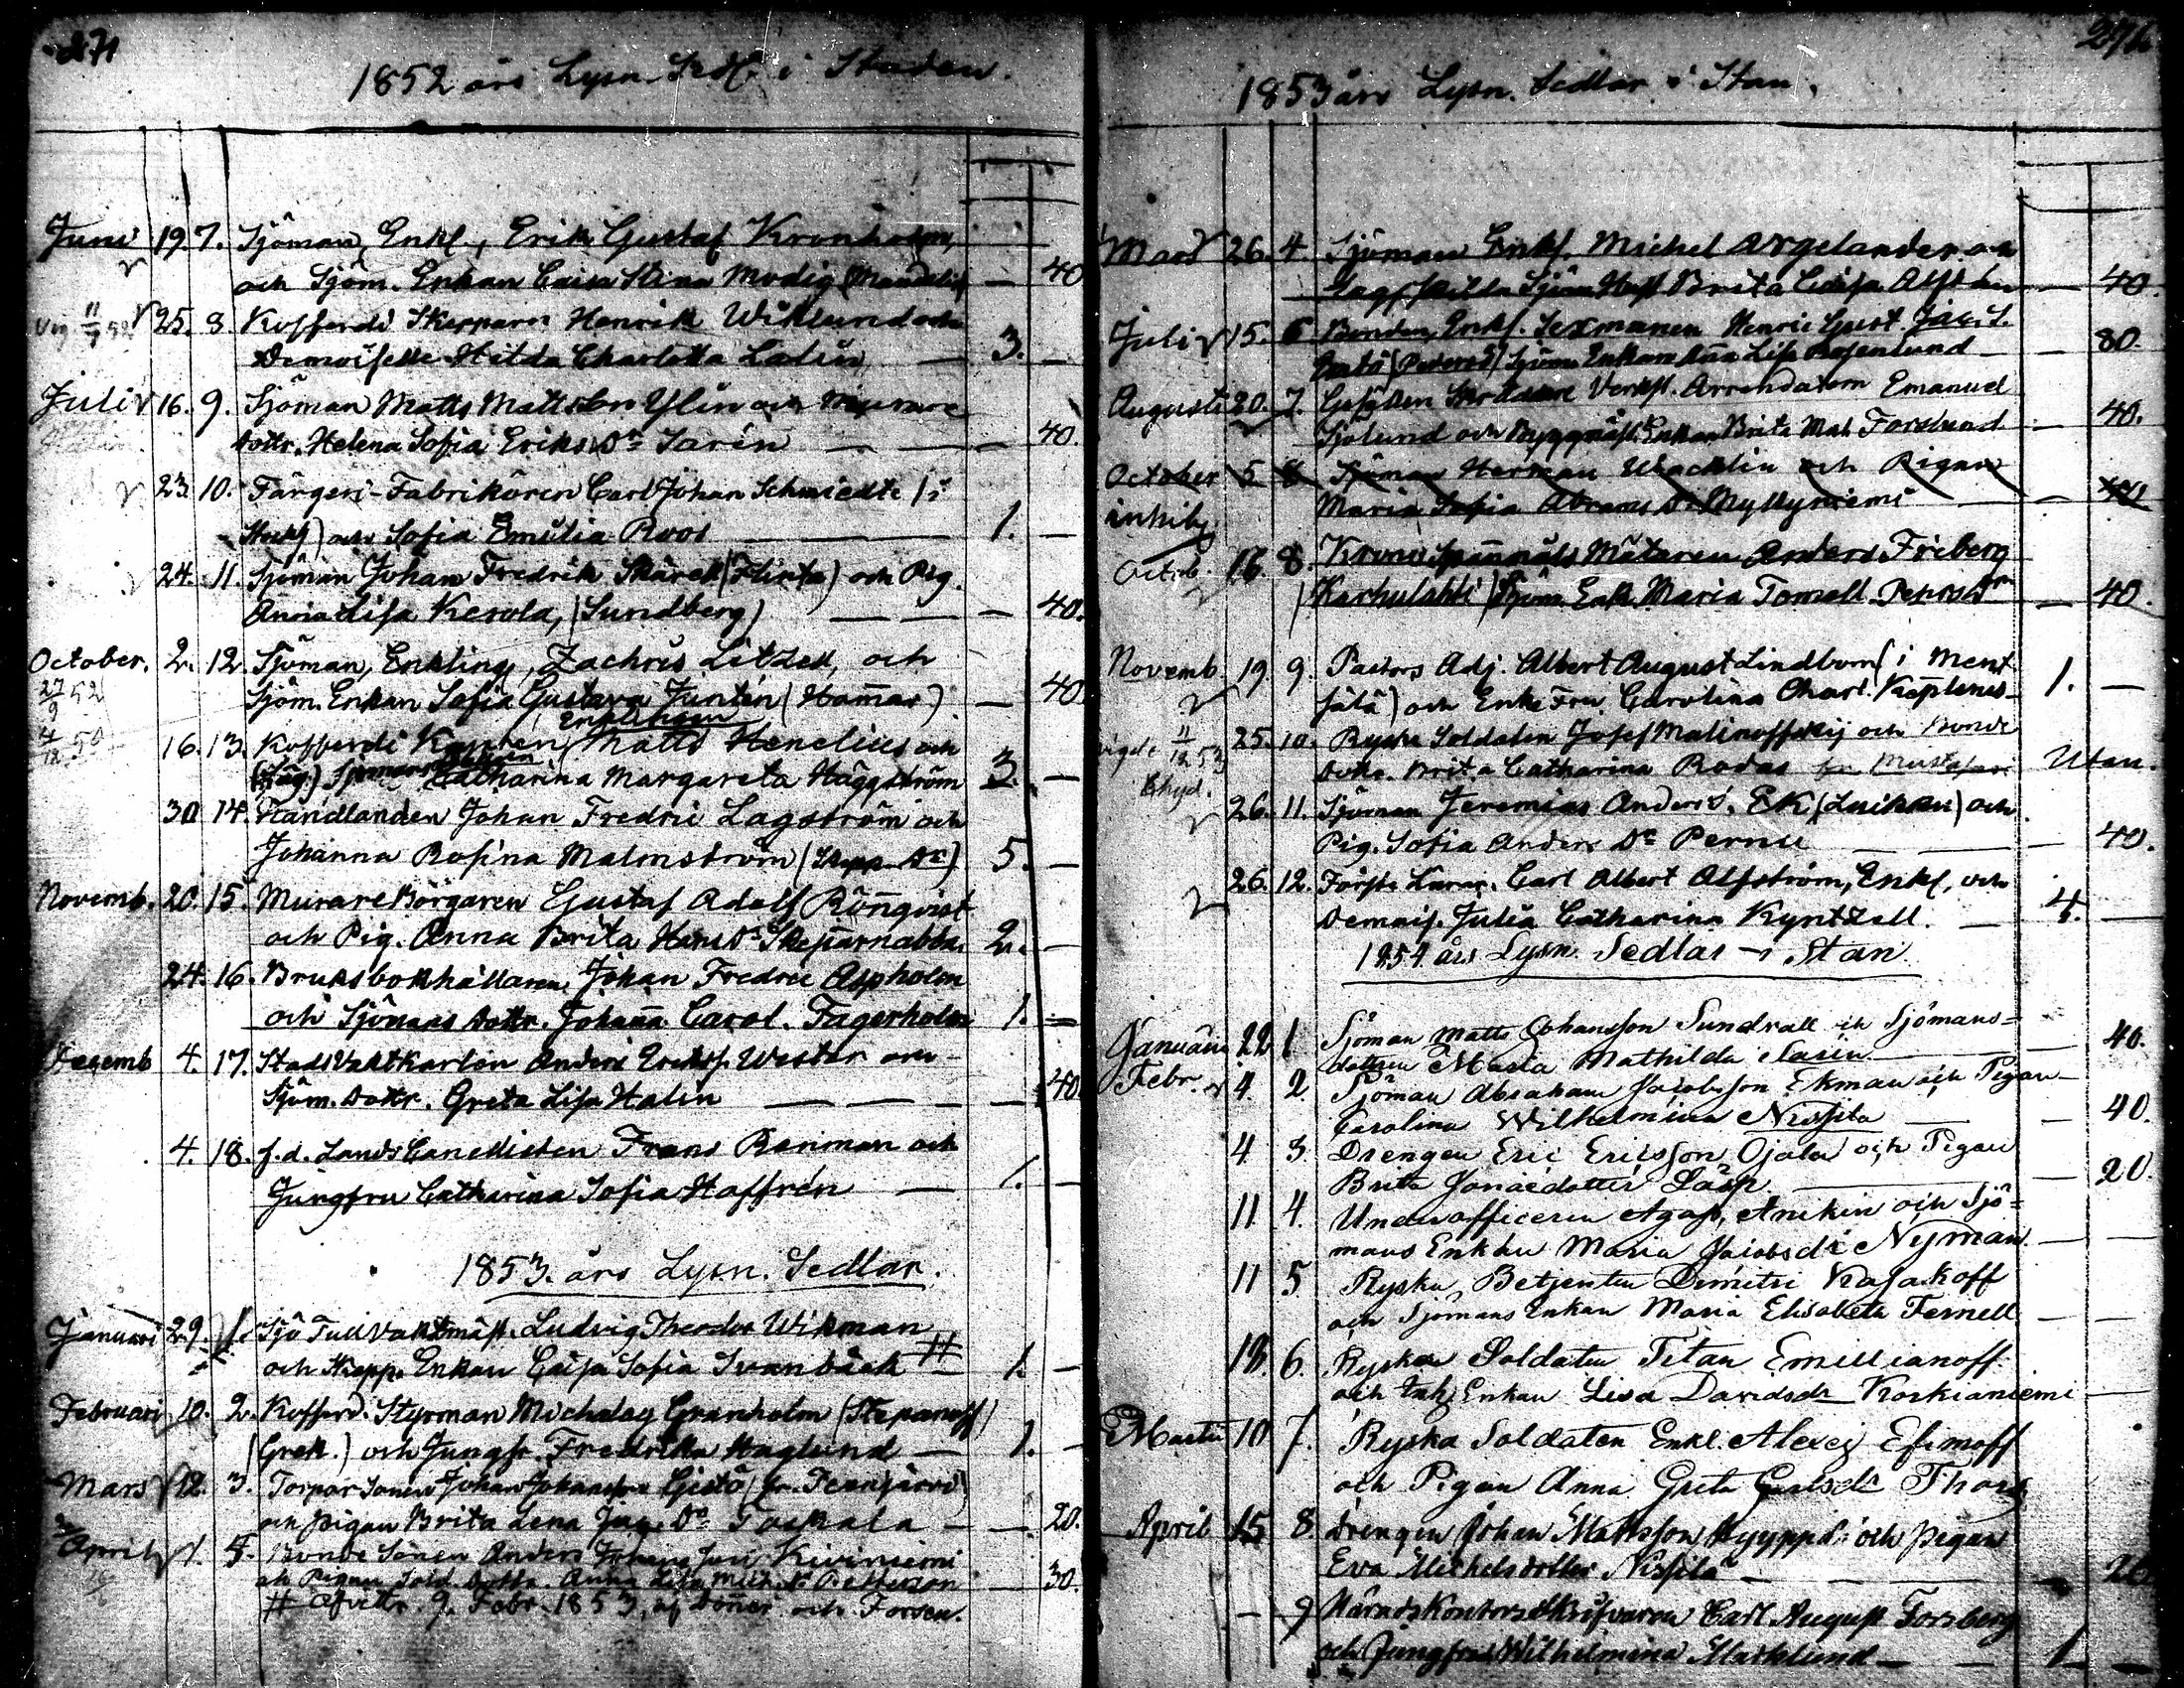 271
1852 års Lysn. Sedl. i Staden.
Juni 19. 7. Sjöman, Enkl., Erik Gustaf Kronholm,
och Sjöm. Enkan Caisa Stina Modig (Mandelin) — 40
25. 8. Kofferdi Skepparen Henrik Wiklund och
Demoiselle Hilda Charlotta Lalin — 3. —
Juli 16. 9. Sjöman Matts Mattsson Ylin och
Dottr. Helena Sofia Eriks Dr Sarén — — 40.
23. 10. Färgeri-Fabrikören Carl Johan Schmiedte (i
) och Sofia Emilia Roos — 1. —
24. 11. Sjöman Johan Fredrik Skärek (Flinta) och Pig.
Anna Lisa Kerola, (Sundberg) — — 40.
October. 2. 12. Sjöman, Enkling, Zachris Litzell, och
27/9 52 Sjöm. Enkan Sofia Gustava Juntén (Hamar) — 40
Enklingen
16. 13. Kofferdi Kapten, Matts Henelius och
Catharina Margareta Häggström 3. —
30 14. Handlanden Johan Fredric Lagström och
Johanna Rosina Malmström (Skepp. Dr) 5. —
Novemb. 20. 15. Murare Börgaren Gustaf Adolf Rönnqvist
och Pig. Anna Brita Hans Dr Skeparnabba. 2. —
24. 16. Bruksbokhållaren Johan Fredric Aspholm
och Sjömans Dottr. Johanna Carol. Fagerholm 1. —
Decemb 4. 17. Stads Vaktkarlen Anders Erikss. Wester och
Sjöm. Dottr. Greta Lisa Halin — — — 40
4. 18. f.d. Lands Cancellisten Frans Renman och
Jungfru Catharina Sofia Hoffrén — 1. —
1853. års Lysn. Sedlar.
Januari 29. 1. Sjö Tull Vaktmäst. Ludvig Theodor Wikman
och Skepp. Enkan Caisa Sofia Svanbäck # 1. —
Februari 10. 2. Kofferd. Styrman Michelay Granholm (Stepanoff)
(Grek.) och Jungfr. Fredrika Haglund — 1. —
Mars 12. 3. Torpar Sonen Johan Johansson
och Pigan Brita Lena Jac. Dr Taskala — — 20.
April 1. 4. Bonde Sonen Anders Kiviniemi
och Pigan Sold. Dottr. Anna Lisa Mich. Dr Petterson — 30.
# Afvittr. 9. Febr. 1853, af Döner och Forsen.
1853 års Lysn. Sedlar i Stan.
Mars 26. 4. Sjöman Enkl. Michel Argelander och
Sjöm. Hust. Brita Caisa Alstén — 40.
Juli 15. 6. Bonden, Enkl. Sexmannen Henric Gust. Jac. S.
Sjöm. Enkan Anna Lisa Rosenlund — — 80.
Augusti 20. 7. Gesällen Skräddare Verkst. Arrendatorn Emanuel
Sjölund och Byggmäst. Enkan Brita Mat. Forslund — 40.
October 5 8 Sjöman Herman Wacklin och Pigan
Maria Sofia Abrams Dr Myllyniemi — 40
Octob. 16. 8. Krono Spanmåls Mätaren Anders Friberg
(Karhulahti) Sjöm. Enk. Maria Tomell Petters Dr — 40.
Novemb. 19. 9. Pastors Adj. Albert August Lindbom (i Ment-
sälä) och Enke Fru Carolina Charl. Keplerus — 1. —
11/12 53 25. 10. Ryska Soldaten Josef Malinoffskij och Bonde
Dottr. Brita Catharina Rodas Utan.
26. 11. Sjöman Jeremias Anders. Ek (Luikku) och
Pig. Sofia Anders Dr Pernu — — 40.
26. 12. Förste Lärar. Carl Albert Alfström, Enkl, och
Demois. Julia Catharina Kyntzell. — 4. —
1854 års Lysn. Sedlar i Stan.
Januari 22 1 Sjöman Matts Johansson Sundvall och Sjömans=
dottren Maria Mathilda Sarin — 40.
Febr. 4. 2 Sjöman Abraham Jacobsson Ekman och Pigan
Carolina Wilhelmina Nissilä — 40.
4 3. Drengen Eric Ericsson Ojala och Pigan
Brita Jonaedotter — 20.
11 4. Underofficeren Agap. Anikin och Sjö=
mans Enkan Maria Jacobsdr Nyman. — —
11 5 Ryska Betjenten Dimitri Kasakoff
och Sjömans Enkan Maria Elisabeth Fernell —
18. 6. Ryska Soldaten Titan Emillianoff
och Enkan Lisa Davidsdr Koskianiemi —
Martii 10 7. Ryska Soldaten Enkl. Alexej Efimoff
och Pigan Anna Greta
April 15 8. Drengen Johan Mattsson Hyyppä och Pigan
Eva Michelsdotter Nissilä — — 20
— 9 Härads Skrifvaren Carl August Forsberg
och Jungfrun Wilhelmina Marklund — — 1 —